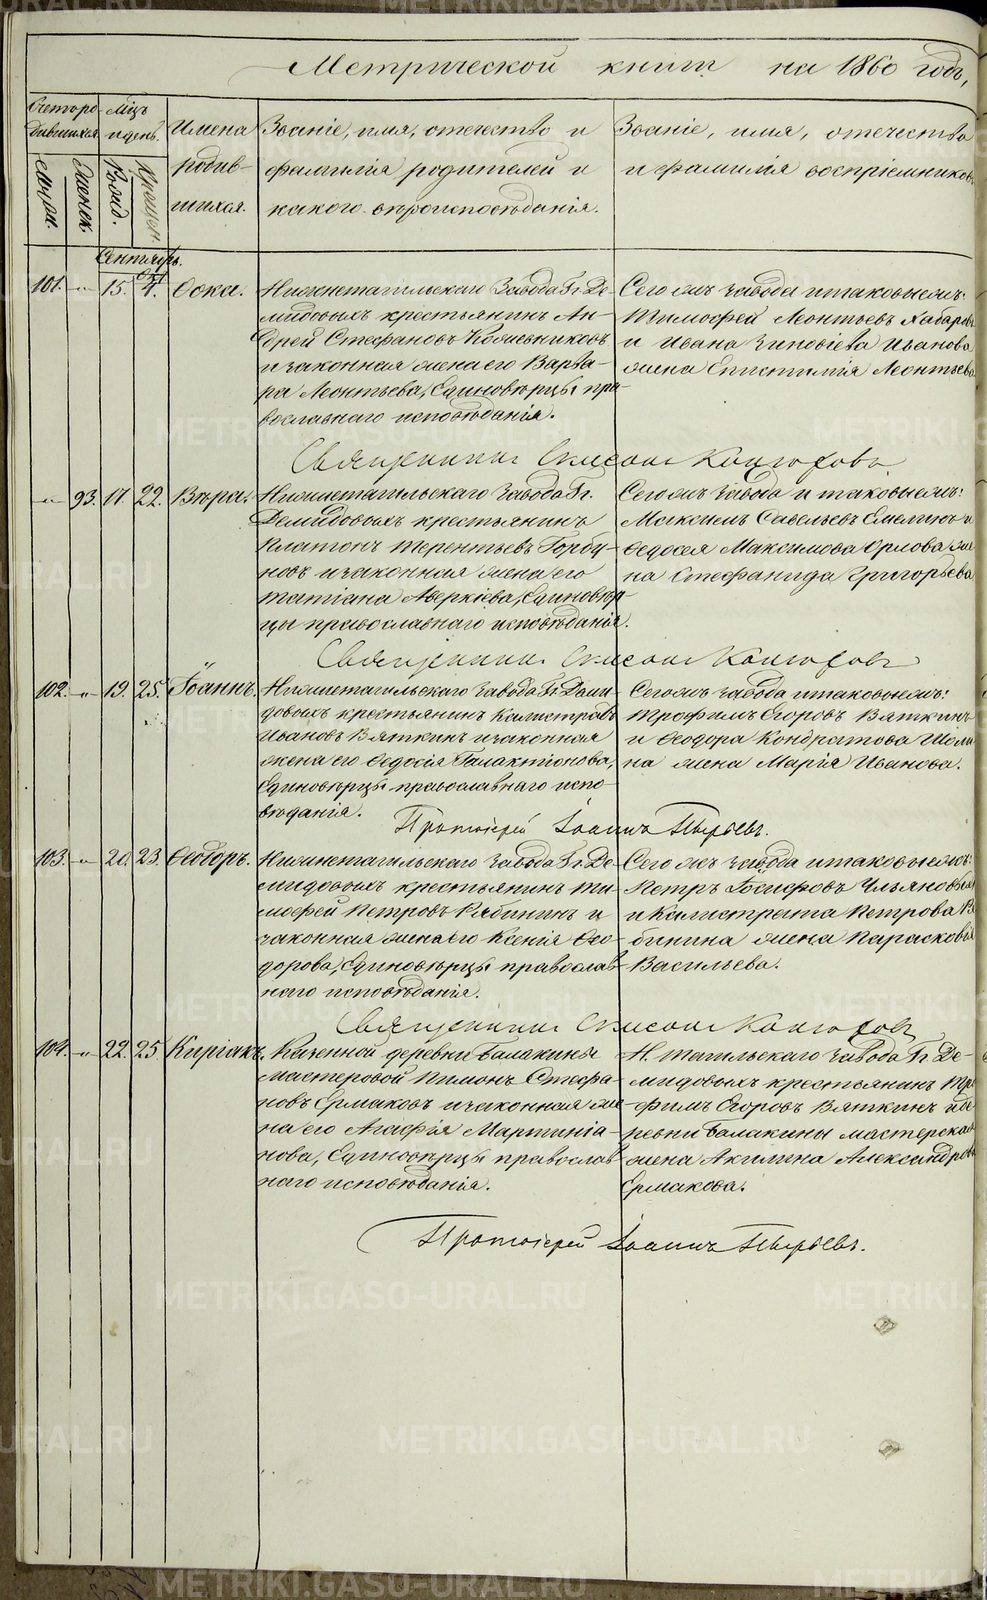 Метрической книги на 1860 годъ,
Счетъ родившихся.
Мѣсяцъ и день.
Имена родившихся.
Званіе, имя, отечество и
фамилія родителей и
какого вѣроисповѣданія.
Званіе, имя, отечество
и фамилія воспріемниковъ
Мужск. Женск. Рожд. Крещен.
Сентябрь.
101. " 15. Окт. 4. Ѳока.
Нижнетагильскаго Завода Гг. Де-
мидовыхъ крестьянинъ Ан-
дрей Стефановъ Кожевниковъ
и законная жена его Варва-
ра Леонтьева, Единовѣрцы пра-
вославнаго исповѣданія.
Сего жъ завода и таковые жъ:
Тимофей Леонтьевъ Хабаровъ
и Ивана Зиновіева Иванова
жена Епистимія Леонтьева
Священникъ Симеонъ Конюховъ
" 93. 17. 22. Вѣра.
Нижнетагильскаго Завода Гг.
Демидовыхъ крестьянинъ
Платонъ Терентьевъ Горбу-
новъ и законная жена его
Татіана Аверкіева, Единовѣр-
цы православнаго исповѣданія.
Сего жъ завода и таковые жъ:
Максимъ Савельевъ Емелинъ и
Ѳедосея Максимова Орлова же-
на Стефанида Григорьева
Священникъ Симеонъ Конюховъ
102. " 19. 25. Іоаннъ.
Нижнетагильскаго Завода Гг. Деми-
довыхъ крестьянинъ Калистратъ
Ивановъ Вяткинъ и законная
жена его Ѳедосія Галактіонова,
Единовѣрцы православнаго испо-
вѣданія.
Сего жъ завода и таковые жъ:
Трофимъ Егоровъ Вяткинъ
и Ѳеодора Кондратова
на жена Марія Иванова.
Протоіерей Іоаннъ Пырьевъ.
103. " 20. 23. Ѳеодоръ.
Нижнетагильскаго Завода Гг. Де-
мидовыхъ крестьянинъ Ти-
мофей Петровъ Рябининъ и
законная жена его Ксенія Ѳео-
дорова, Единовѣрцы православ-
наго исповѣданія.
Сего жъ завода и таковые жъ:
Петръ Іосифовъ Ульяновъ
и Калистрата Петрова Ря-
бинина жена Парасковья
Васильева.
Священникъ Симеонъ Конюховъ
104. " 22. 25 Киріакъ.
Казенной деревни Балакины
мастеровой Пимонъ Стефа-
новъ Ермаковъ и законная же-
на его Агафія Мартинiа-
нова, Единовѣрцы православ-
наго исповѣданія.
Н. Тагильскаго Завода Гг. Де-
мидовыхъ крестьянинъ Тро-
фимъ Егоровъ Вяткинъ и де-
ревни Балакины мастерская
жена Акилина Александрова
Ермакова.
Протоіерей Іоаннъ Пырьевъ.
METRIKI.GASO-URAL.RU